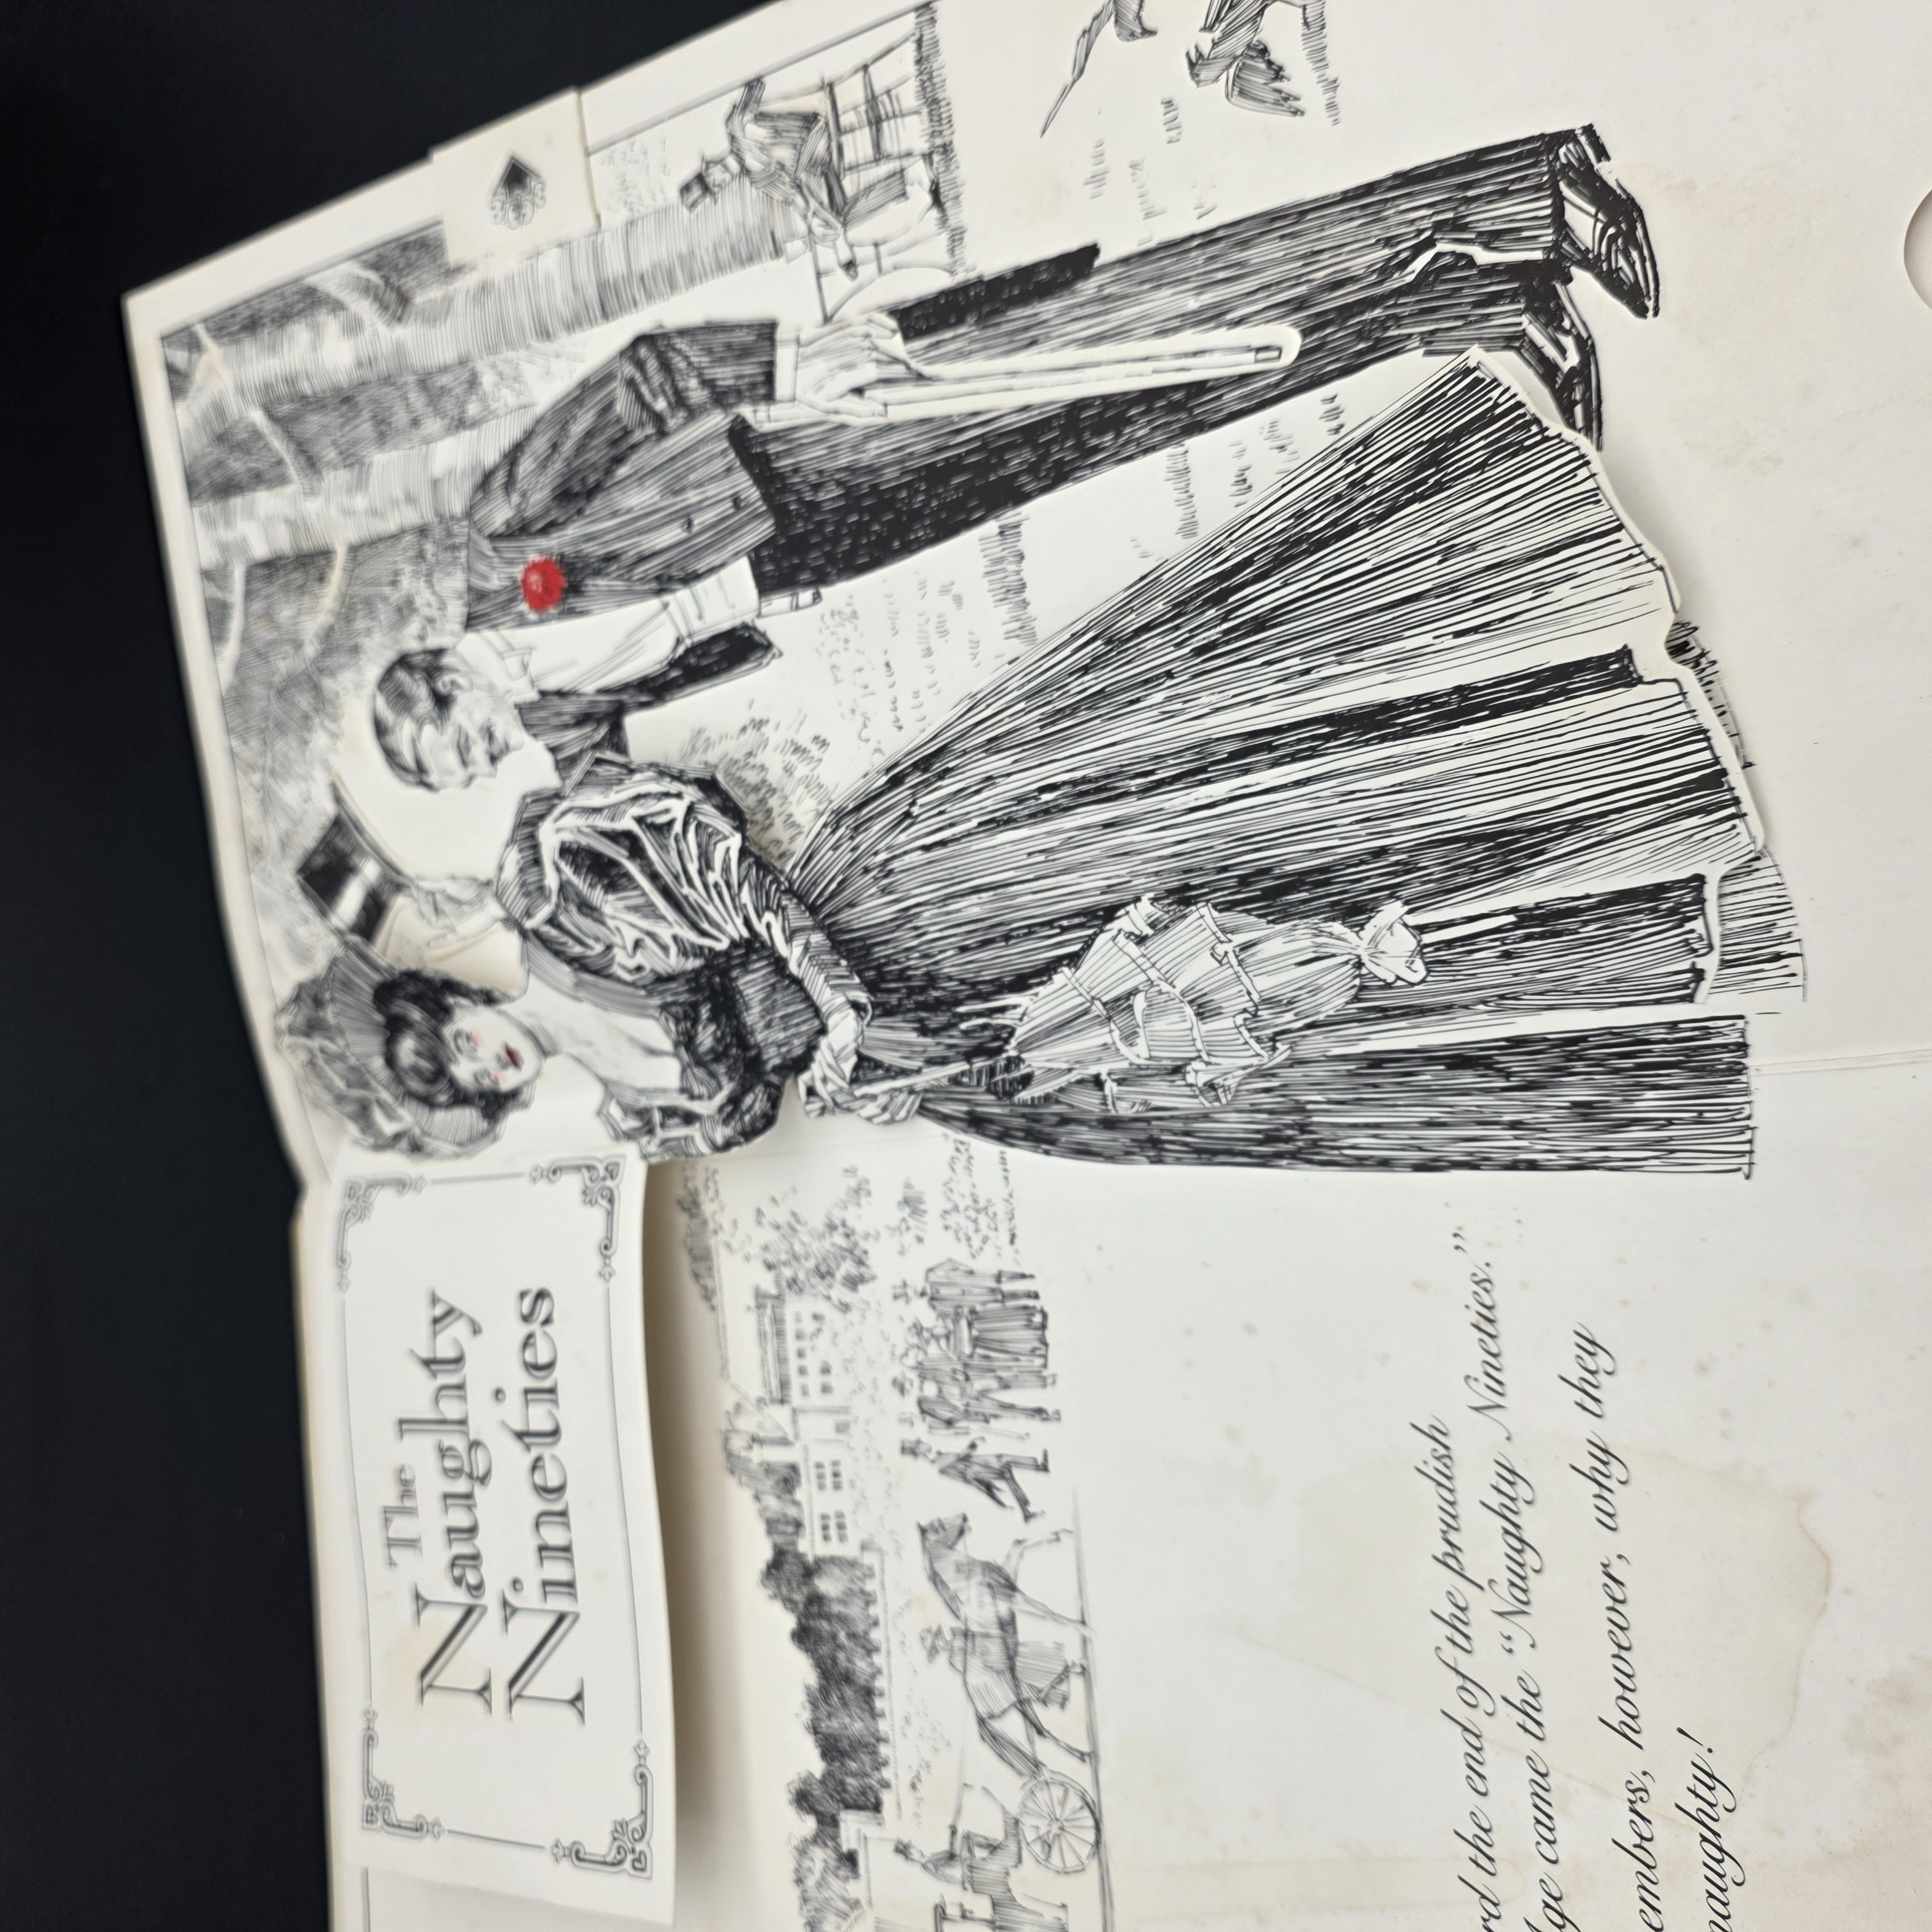 The
Naughty
Nineties
the end of the prudish
came the "Naughty Nineties."
however, why they
naughty!